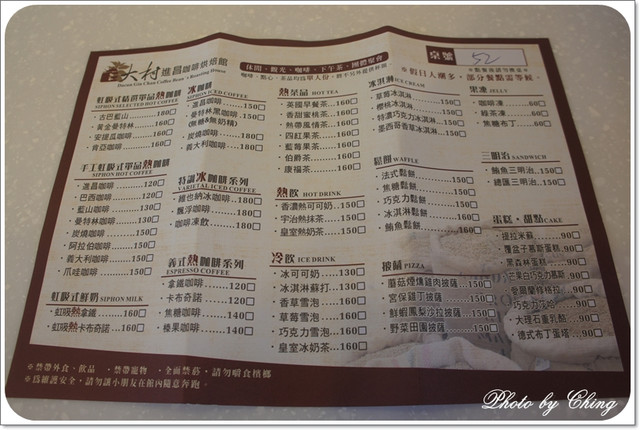 大村
進昌咖啡烘焙館
休閒、觀光、咖啡、下午茶、團體聚會
桌號 52
虹吸式精選單品熱咖啡
SIPHON SELECTED HOT COFFEE
・古巴藍山......180□
・黃金曼特林......160□
・安提瓜咖啡......160□
・肯亞咖啡......160□
手工虹吸式單品熱咖啡
SIPHON HOT COFFEE
・進昌咖啡......120□
・巴西咖啡......120□
・藍山咖啡......130□
・曼特林咖啡......130□
・炭燒咖啡......150□
・阿拉伯咖啡......150□
・義大利咖啡......150□
・爪哇咖啡......150□
虹吸式鮮奶 SIPHON MILK
・虹吸熱拿鐵......160□
・虹吸熱卡布奇諾...160□
冰咖啡
SIPHON ICED COFFEE
・進昌咖啡......150□
・曼特林黑咖啡...150□
(無糖&無奶精)
・炭燒咖啡......180□
・義大利咖啡......180□
特調冰咖啡系列
VARIETAL ICED COFFEE
・維也納冰咖啡...180□
・飄浮咖啡......180□
・咖啡凍飲......180□
義式熱咖啡系列
ESPRESSO COFFEE
・拿鐵咖啡......120□
・卡布奇諾......120□
・焦糖咖啡......140□
・榛果咖啡......140□
熱菜品 HOT TEA
・英國早餐茶...160□
・香甜蜜桃茶...160□
・熱帶風情茶...160□
・四紅果茶......160□
・藍莓果茶......160□
・伯爵茶......160□
・康福茶......160□
熱飲 HOT DRINK
・香濃熱可可奶...150□
・宇治熱抹茶......150□
・皇室熱奶茶......150□
冷飲 ICE DRINK
・冰可可奶......130□
・冰淇淋蘇打...130□
・香草雪泡......150□
・草莓雪泡......150□
・巧克力雪泡...150□
・皇室冰奶茶...160□
冰淇淋 ICE CREAM
・草莓冰淇淋......150□
・櫻桃冰淇淋......150□
・特濃巧克力冰淇淋...150□
・墨西哥香草冰淇淋...150□
鬆餅 WAFFLE
・法式鬆餅......160□
・焦糖鬆餅......160□
・巧克力鬆餅...160□
・冰淇淋鬆餅...160□
・鮪魚鬆餅......160□
披薩 PIZZA
・蘑菇煙燻雞肉披薩...150□
・宮保雞丁披薩......150□
・鮮蝦鳳梨沙拉披薩...150□
・野菜田園披薩......150□
※假日人潮多，部分餐點需等候。
果凍 JELLY
・咖啡凍......60□
・綠茶凍......60□
・焦糖布丁......60□
三明治 SANDWICH
・鮪魚三明治...150□
・總匯三明治...150□
蛋糕、甜點 CAKE
・提拉米蘇......90□
・覆盆子慕斯蛋糕...90□
・黑森林蛋糕......90□
・芒果白巧克力慕斯...90□
・大理石重乳酪......90□
・德式布丁蛋塔...90□
※禁帶外食、飲品 ・禁帶寵物 ・全面禁菸，請勿嚼食檳榔
※為維護安全，請勿讓小朋友在館內隨意奔跑。
Photo by Ching